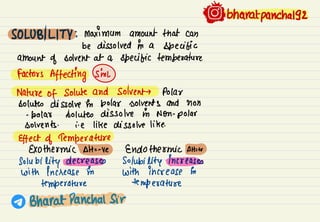 bharatpanchal92
SOLUBILITY : Maximum amount that can
be dissolved in a specific
amount of solvent at a specific temperature
Factors Affecting (S in L)
Nature of Solute and Solvent → Polar
solute dissolve in polar solvents and non
-polar solutes dissolve in Non-polar
solvents. i.e like dissolve like.
Effect of Temperature
Exothermic ΔH=-ve Endothermic ΔH=+ve
Solubility decreases Solubility Increases
with Increase in with increase in
temperature temperature
Bharat Panchal Sir